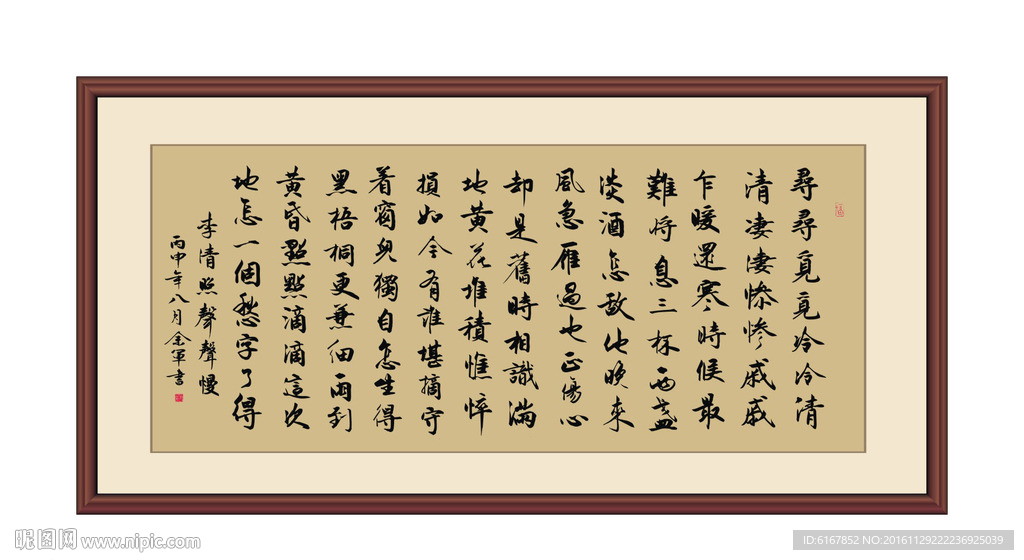 尋尋覓覓冷冷清
清凄凄慘慘戚戚
乍暖還寒時候最
難將息三杯兩盞
淡酒怎敵他晚來
風急雁過也正傷心
却是舊時相識滿
地黃花堆積憔悴
損如今有誰堪摘守
着窗兒獨自怎生得
黑梧桐更兼細雨到
黃昏點點滴滴這次
地怎一個愁字了得
李清照聲聲慢
丙申年八月金軍書
昵图网 www.nipic.com
ID:6167852 NO:20161129222236925039